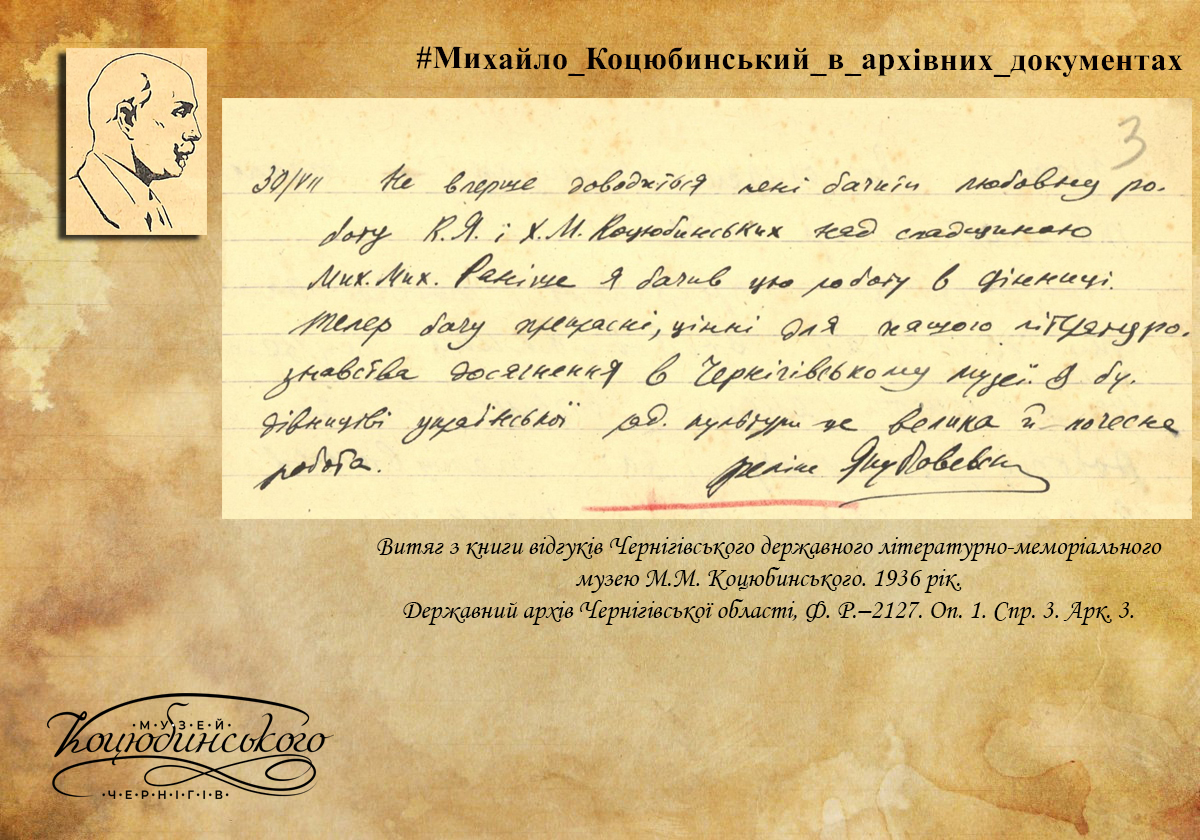 #Михайло_Коцюбинський_в_архівних_документах
3
30/VII Не вперше доводиться мені бачити любовну ро-
боту К.Я. і Х.М. Коцюбинських над спадщиною
Мих. Мих. Раніше я бачив цю роботу в Вінниці.
Тепер бачу прекрасні, цінні для нашого літературо-
знавства досягнення в Чернігівському музеї. В бу-
дівництві української рад. культури це велика й почесна
робота. Фелікс Якубовськ
Витяг з книги відгуків Чернігівського державного літературно-меморіального
музею М.М. Коцюбинського. 1936 рік.
Державний архів Чернігівської області, Ф. Р.–2127. Оп. 1. Спр. 3. Арк. 3.
·М·У·З·Е·Й·
Коцюбинського
·Ч·Е·Р·Н·І·Г·І·В·